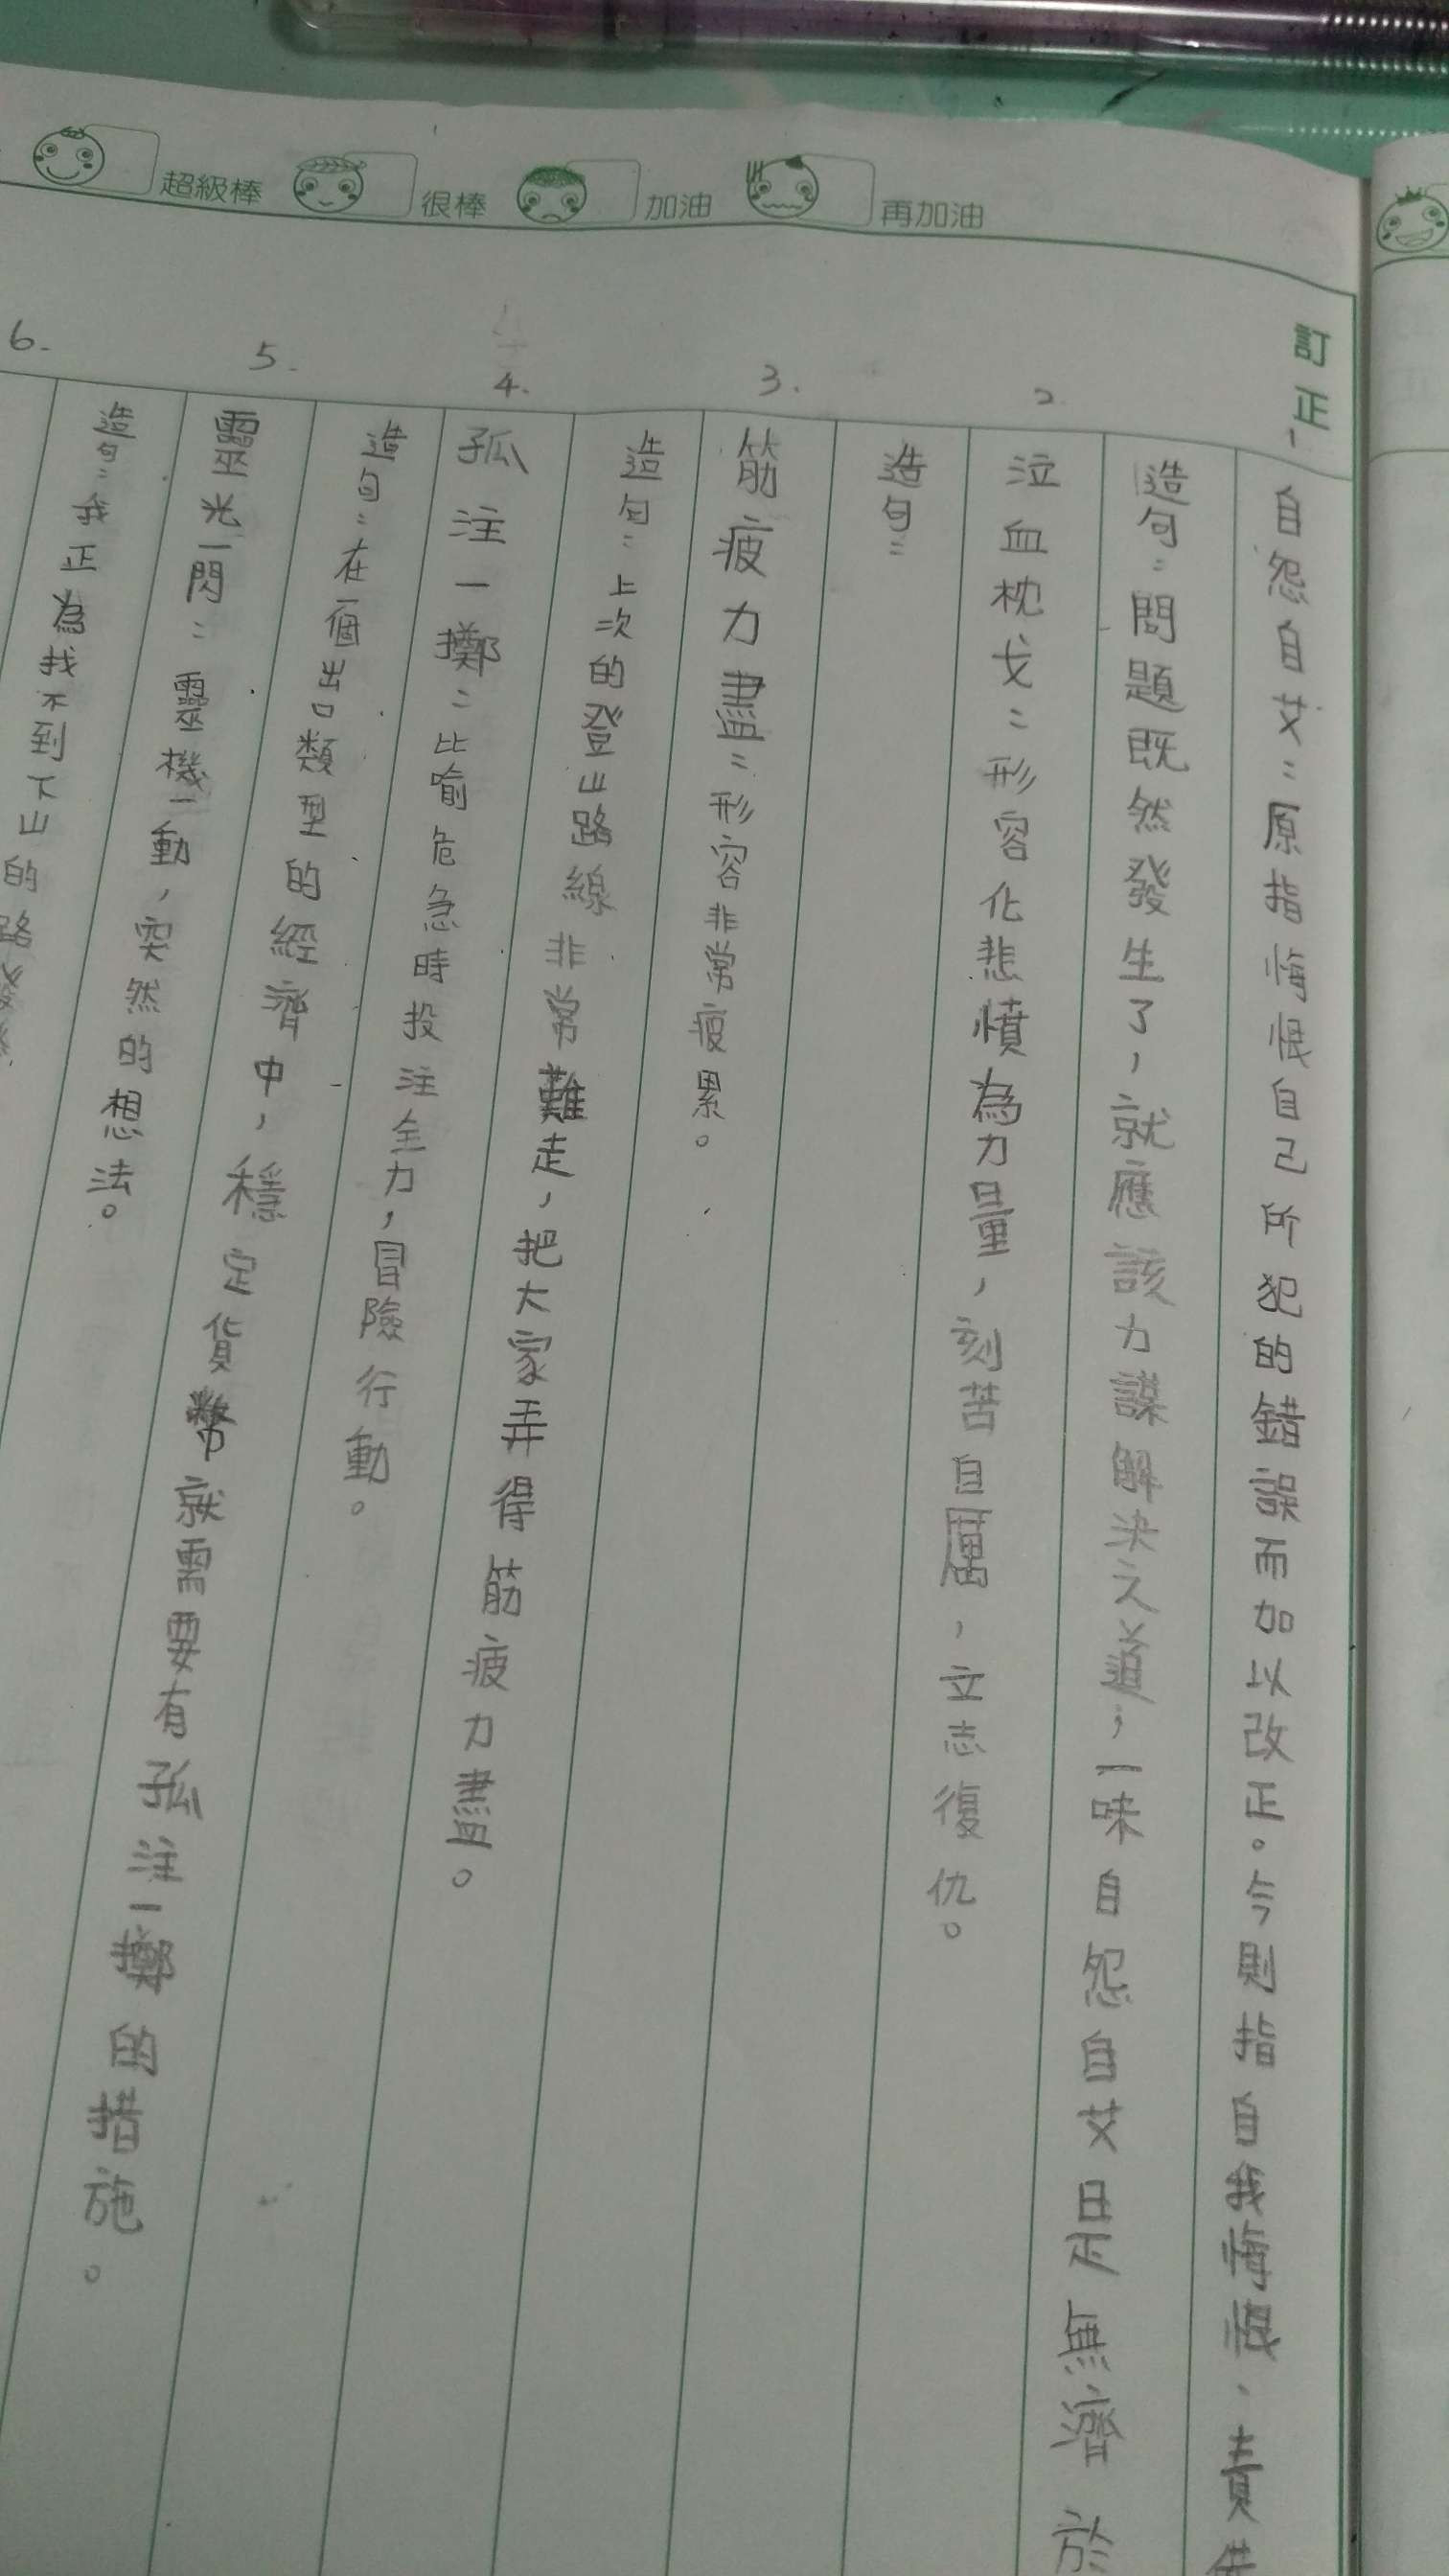 超級棒 很棒 加油 再加油
訂正
1 自怨自艾：原指悔恨自己所犯的錯誤而加以改正。今則指自我悔恨、責
造句：問題既然發生了，就應該力謀解決之道；一味自怨自艾是無濟於
2. 泣血枕戈：形容化悲憤為力量，刻苦自厲，立志復仇。
造句：
3. 筋疲力盡：形容非常疲累。
造句：上次的登山路線非常難走，把大家弄得筋疲力盡。
4. 孤注一擲：比喻危急時投注全力，冒險行動。
造句：在一個出口類型的經濟中，穩定貨幣就需要有孤注一擲的措施。
5. 靈光一閃：靈機一動，突然的想法。
造句：我正為找不到下山的路
6.